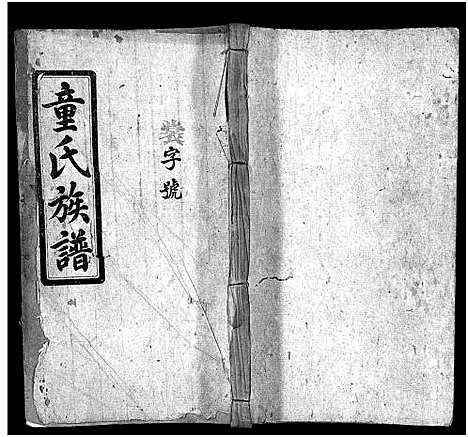 童氏族譜
裳字號